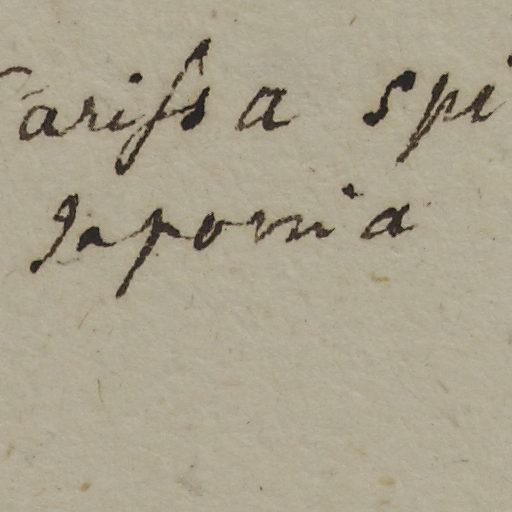 Carissa spi
Japonia